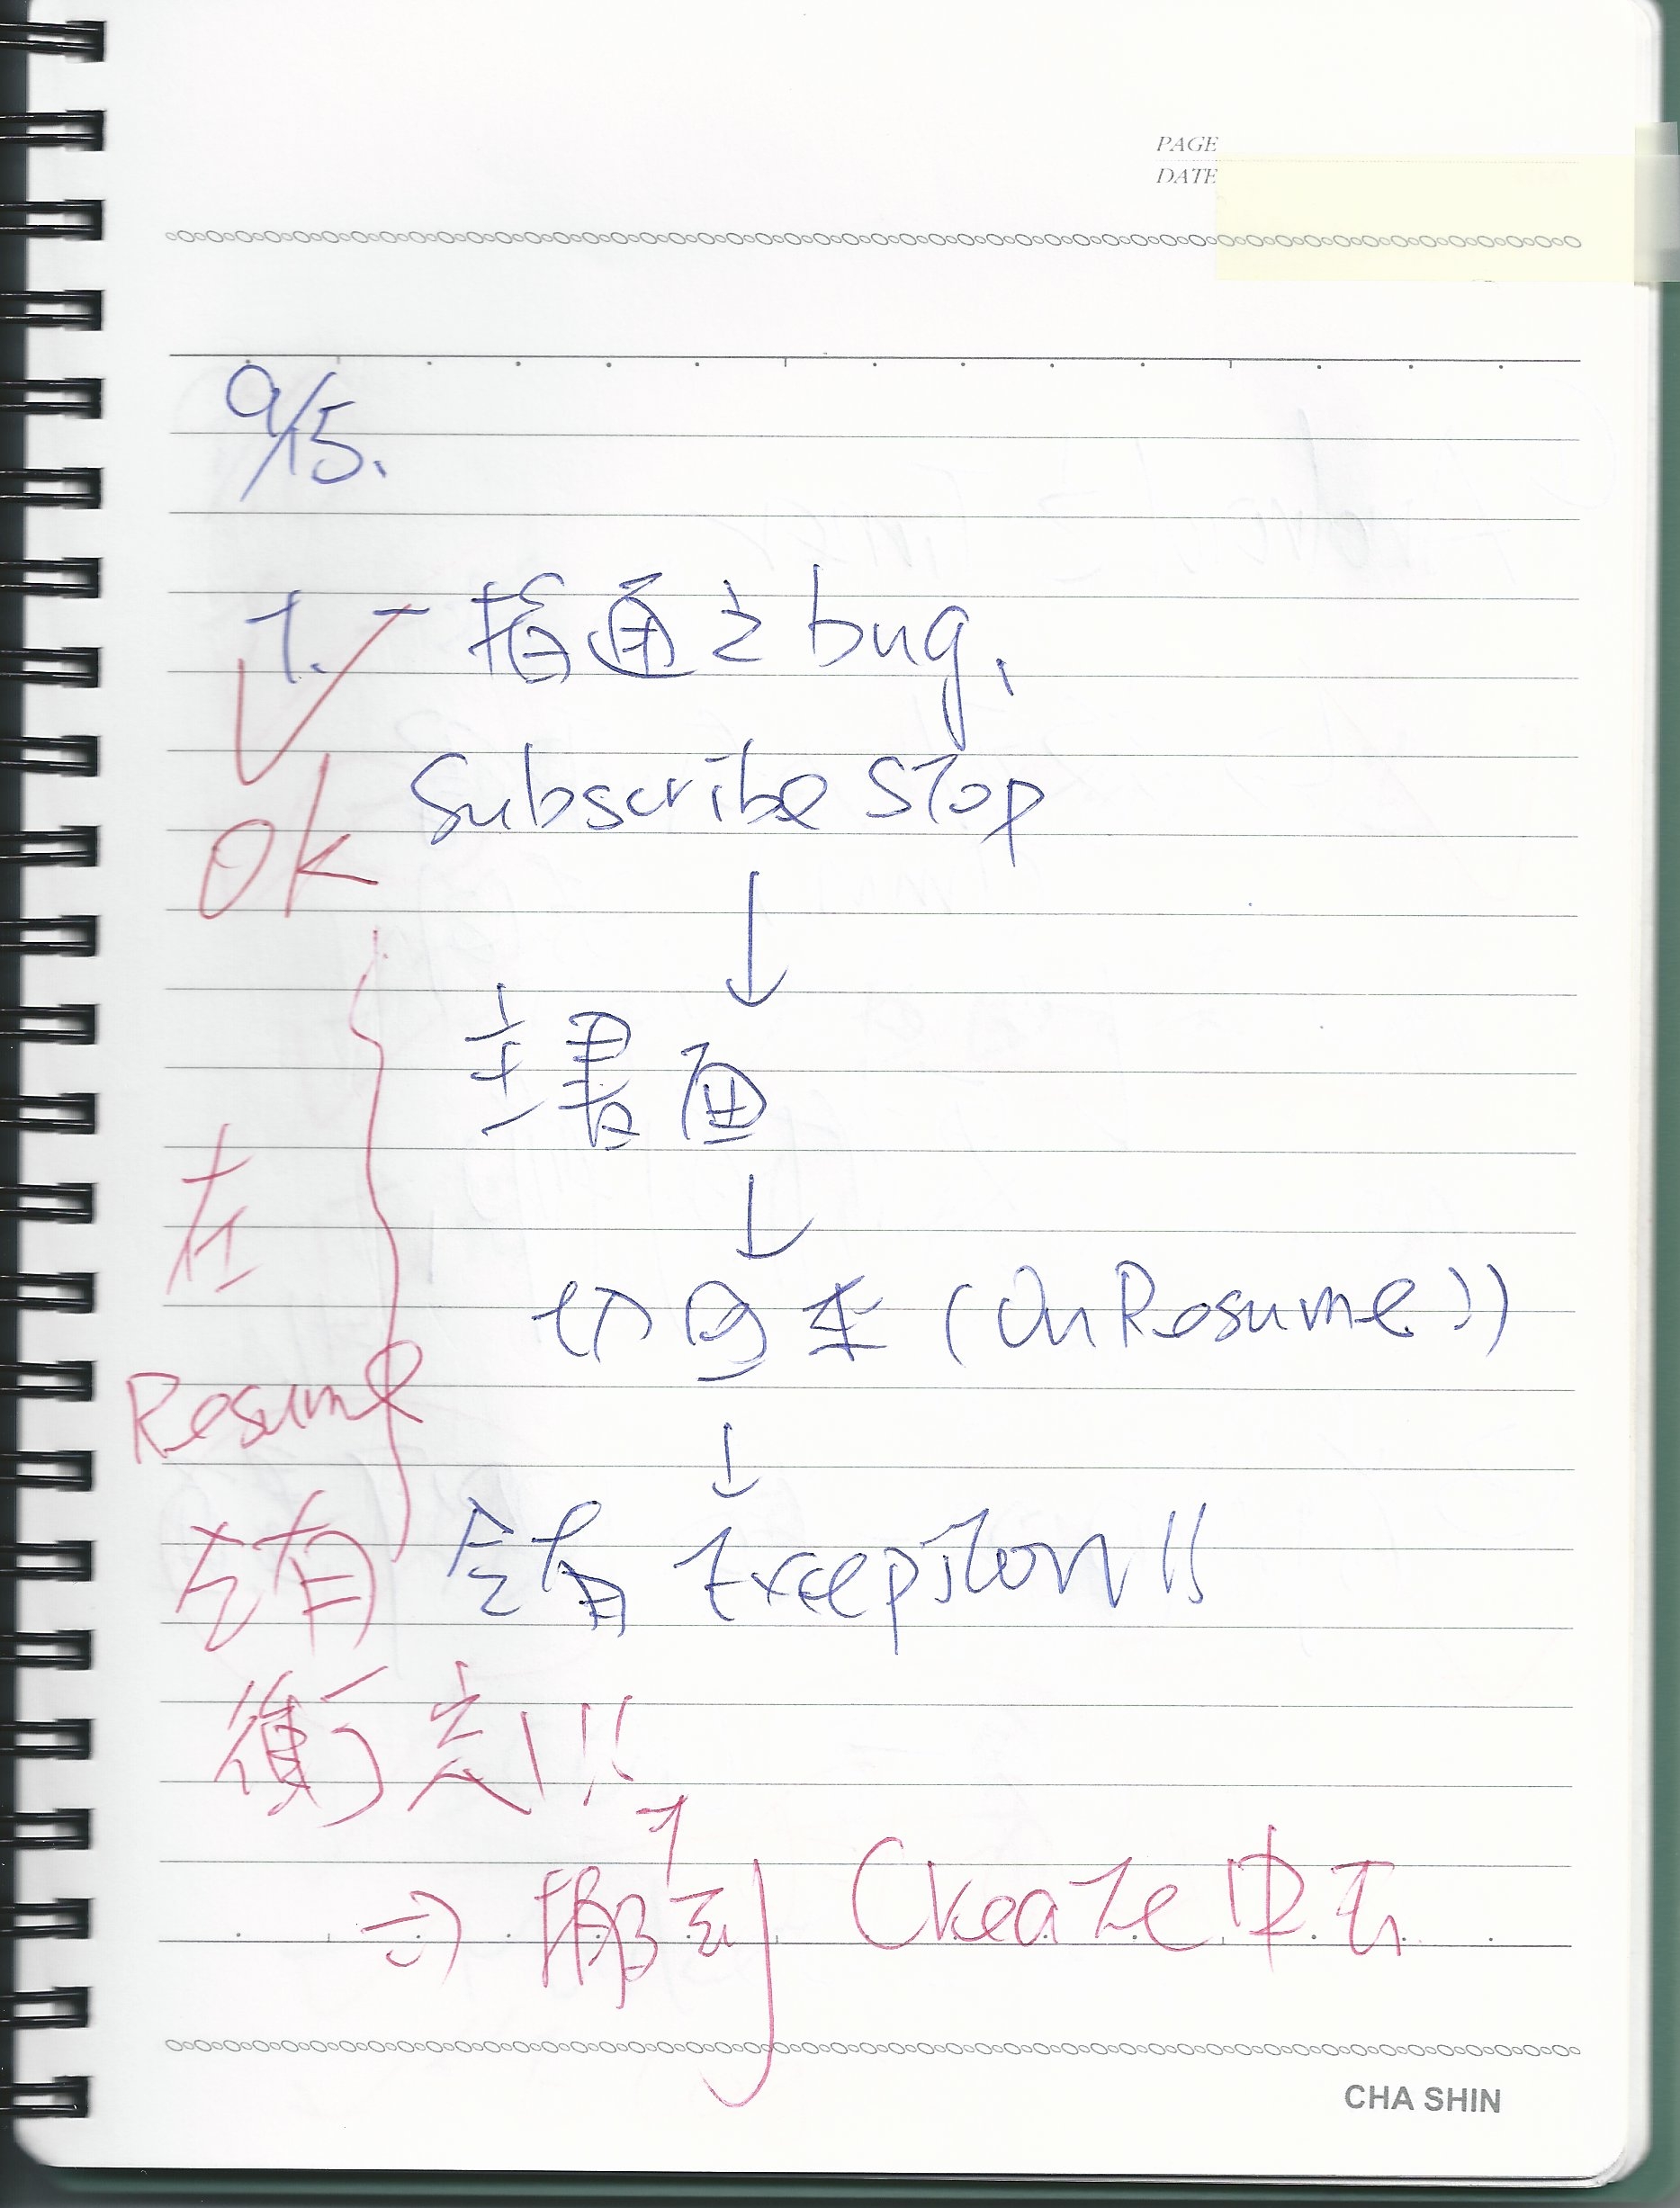 PAGE
DATE
9/15.
1. - 搭配之 bug.
Subscribe Stop
↓
主畫面
↓
切回來 (OnResume())
↓
會有 Excepiton!!
OK
在
Resume
會有
衝突!!
⇒ 挪到 Create 中去
CHA SHIN